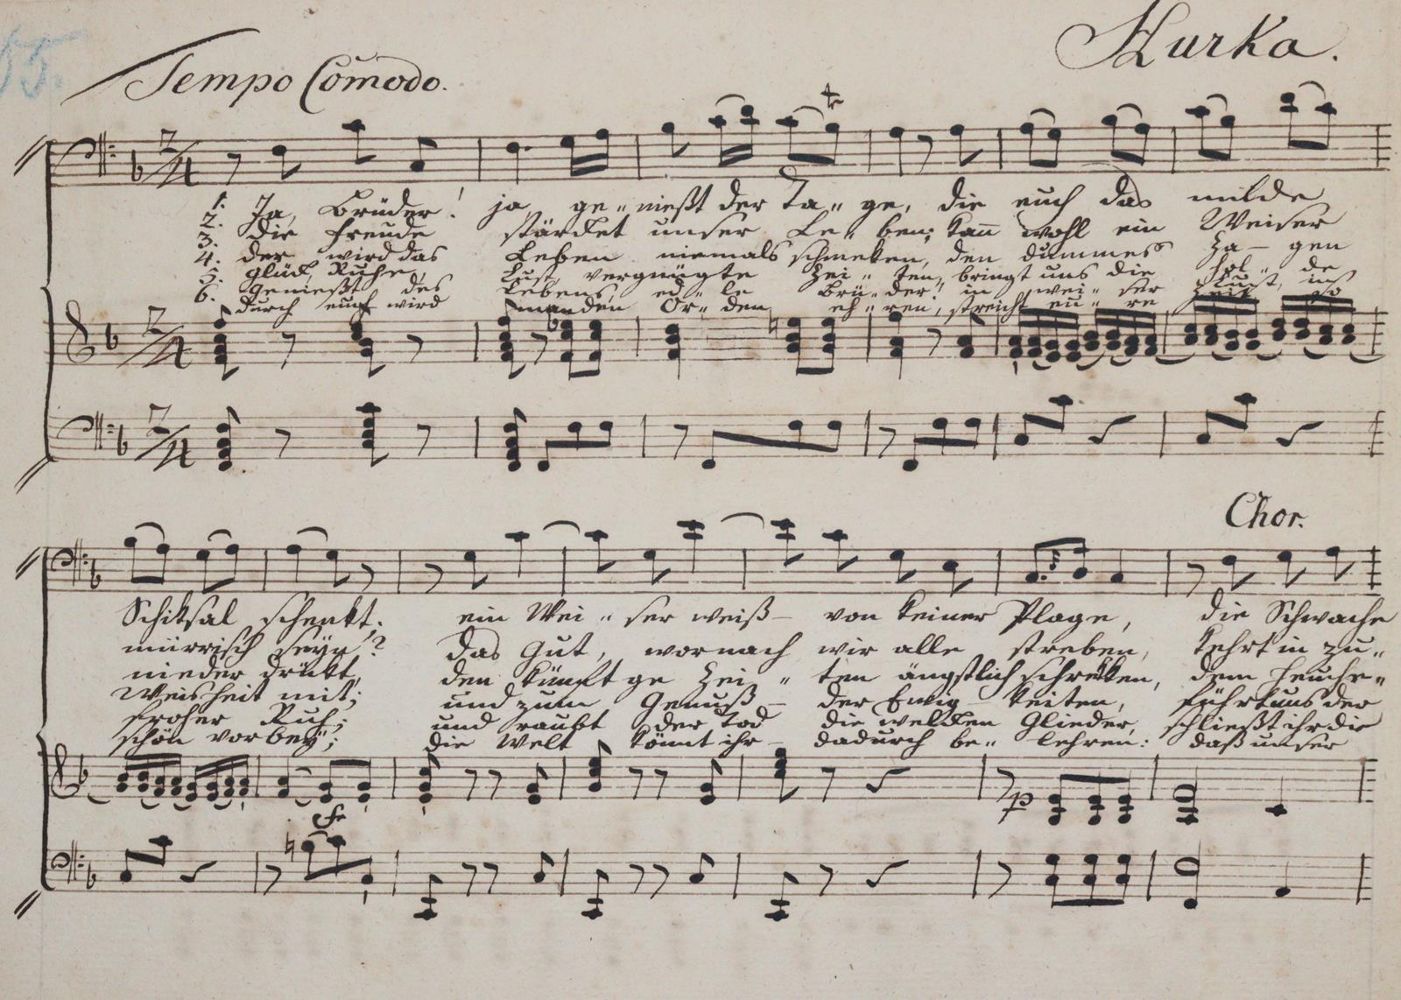 55.
Hurka.
Tempo Comodo.
1. Ja, Brüder! ja ge-nießt der Ta-ge, die euch das milde
2. die Freude stärket unser Le-ben; kan̄ wohl ein Weiser
3. der wird das Leben niemals schmeken, den dummes Za-gen
4. Glück, Ruhe, Lust, vergnügte Zei-ten, bringt uns die hol-de
5. Genießt des Lebens, ed-le Brü-der! in wei-ser
6. durch euch wird Or-den eh-ren, streicht eu-re Zeit so
Chor.
Schiksal schenkt. ein Wei-ser weiß von keiner Plage, die Schwache
mürrisch seyn? das Gut, wornach wir alle streben, kehrt in zu-
nieder drükt, den künft'ge Zei-ten ängstlich schreken, dem heuche-
Weisheit mit; und zum Genuß der Ewig-keiten, führt uns der
froher Ruh; und raubt der Tod die welken Glieder, schließt ihr die
schön vorbey; die Welt könnt ihr dadurch be-lehren: daß unser
p